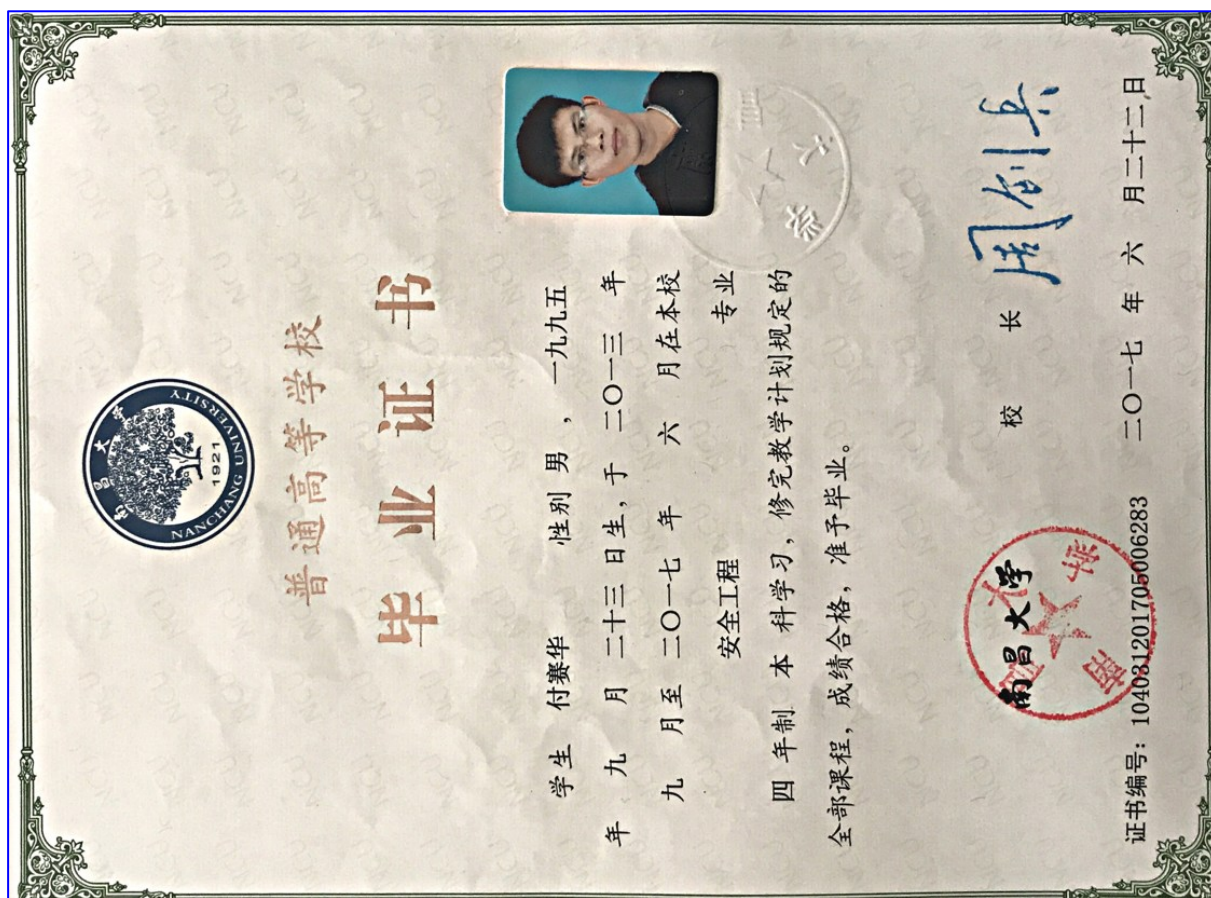 南昌大学
NANCHANG UNIVERSITY
1921
普通高等学校
毕业证书
学生 付赛华 性别 男 ，一九九五
年 九 月 二十三 日生，于 二〇一三 年
九 月至 二〇一七 年 六 月在本校
安全工程 专业
四 年制 本 科学习，修完教学计划规定的
全部课程，成绩合格，准予毕业。
校 长 周创兵
南昌大学
证书编号：104031201705006283 二〇一七 年 六 月二十二日